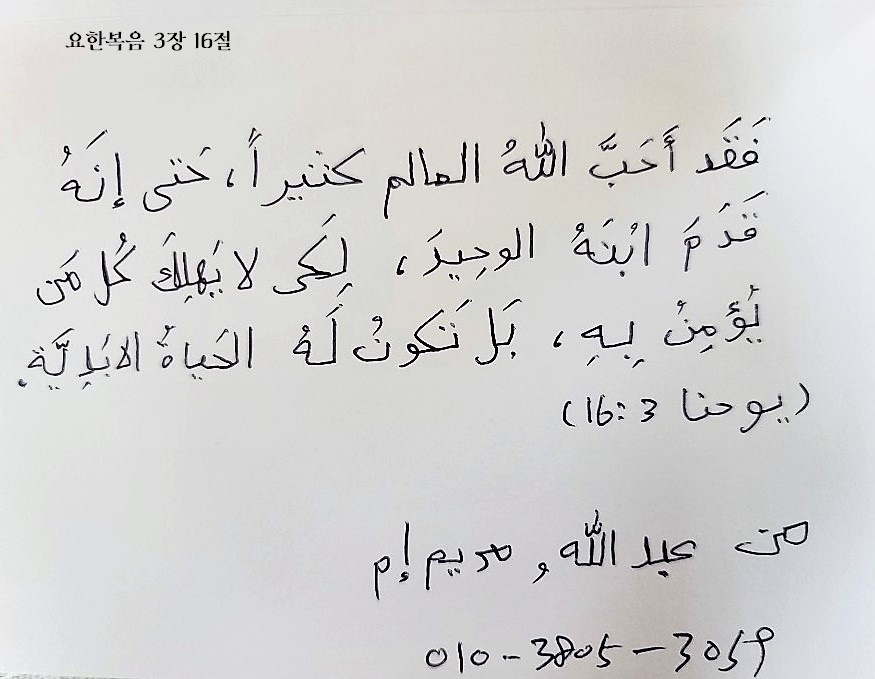 요한복음 3장 16절
فَقَد أَحَبَّ اللهُ العالم كثيراً، حَتى إِنَهُ
قَدَمَ ابْنَهُ الوحِيدَ، لِكَى لا يَهلِكَ كُل مَن
يُؤمِنُ بِهِ، بَل تَكونُ لَهُ الحَياةُ الابَدِيَّة.
(يوحنا 3:16)
من عبد الله, مريم إم
010-3805-3059